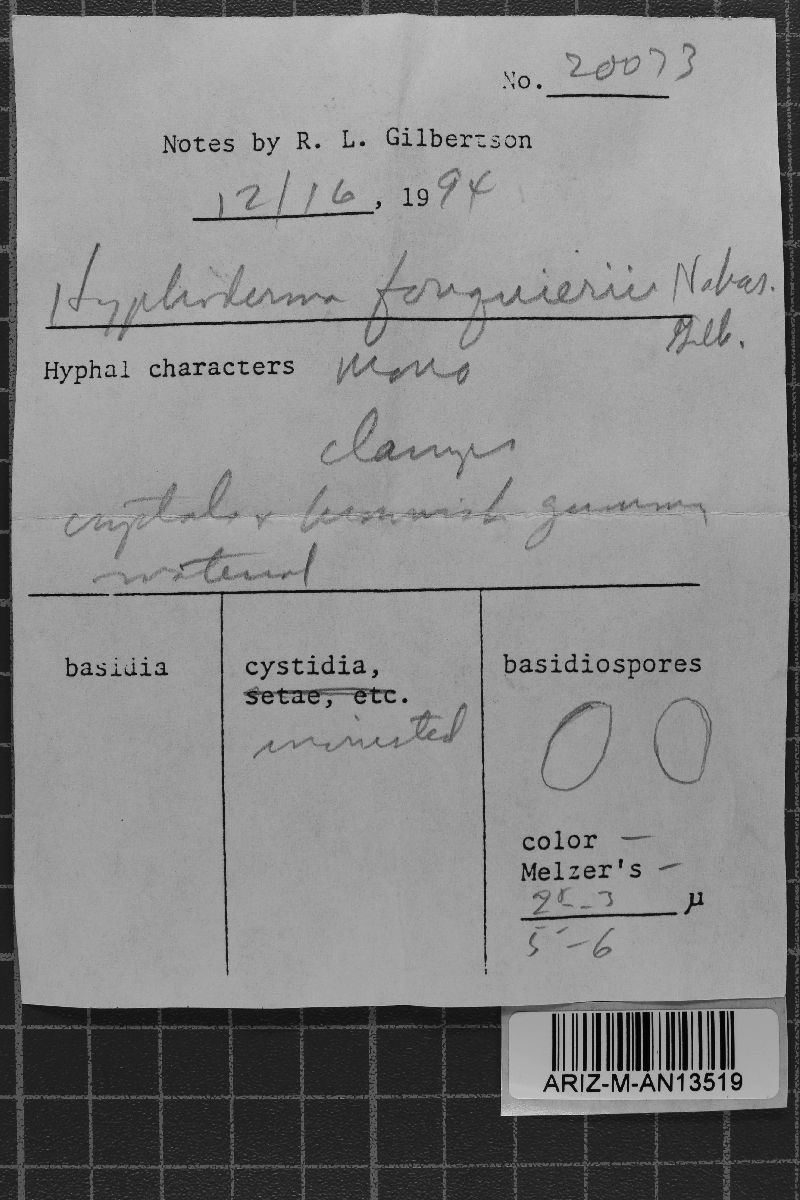 No. 20073
Notes by R. L. Gilbertson
12/16, 1994
Hyphoderma fouquieriae Nakas.
Gilb.
Hyphal characters mono
clamps
crystals & brownish gummy
material
basidia
cystidia,
setae, etc.
incrusted
basidiospores
color —
Melzer's —
25-3 μ
5-6
ARIZ-M-AN13519